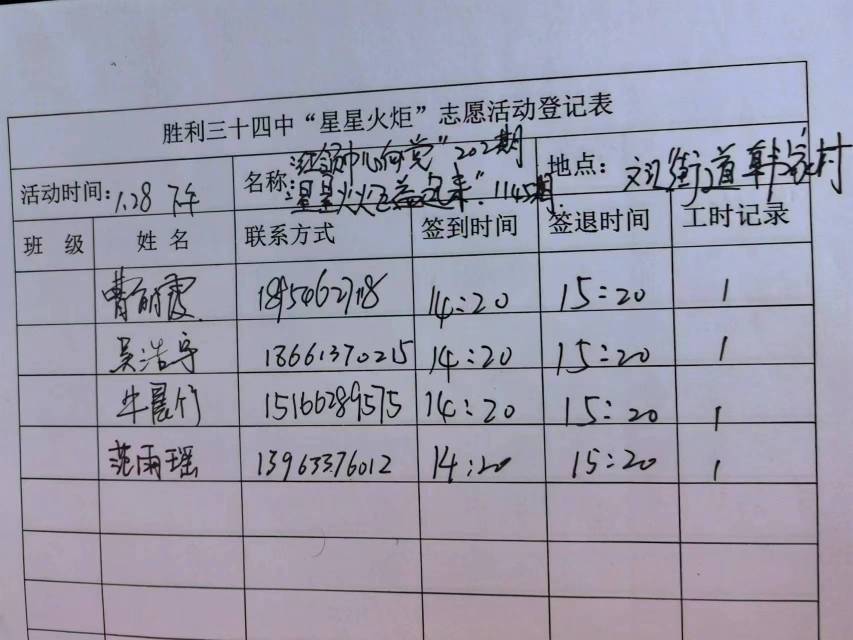 胜利三十四中“星星火炬”志愿活动登记表
活动时间：1.28 下午 名称： 红领巾心向党”202期 地点： 文汇街道韩家村
星星火火 起来”.1145期.
班 级 姓 名 联系方式 签到时间 签退时间 工时记录
曹丽霞 14:20 15:20 1
吴浩宇 13661370215 14:20 15:20 1
牛晨竹 15166289575 14:20 15:20 1
范雨瑶 13963376012 14:20 15:20 1